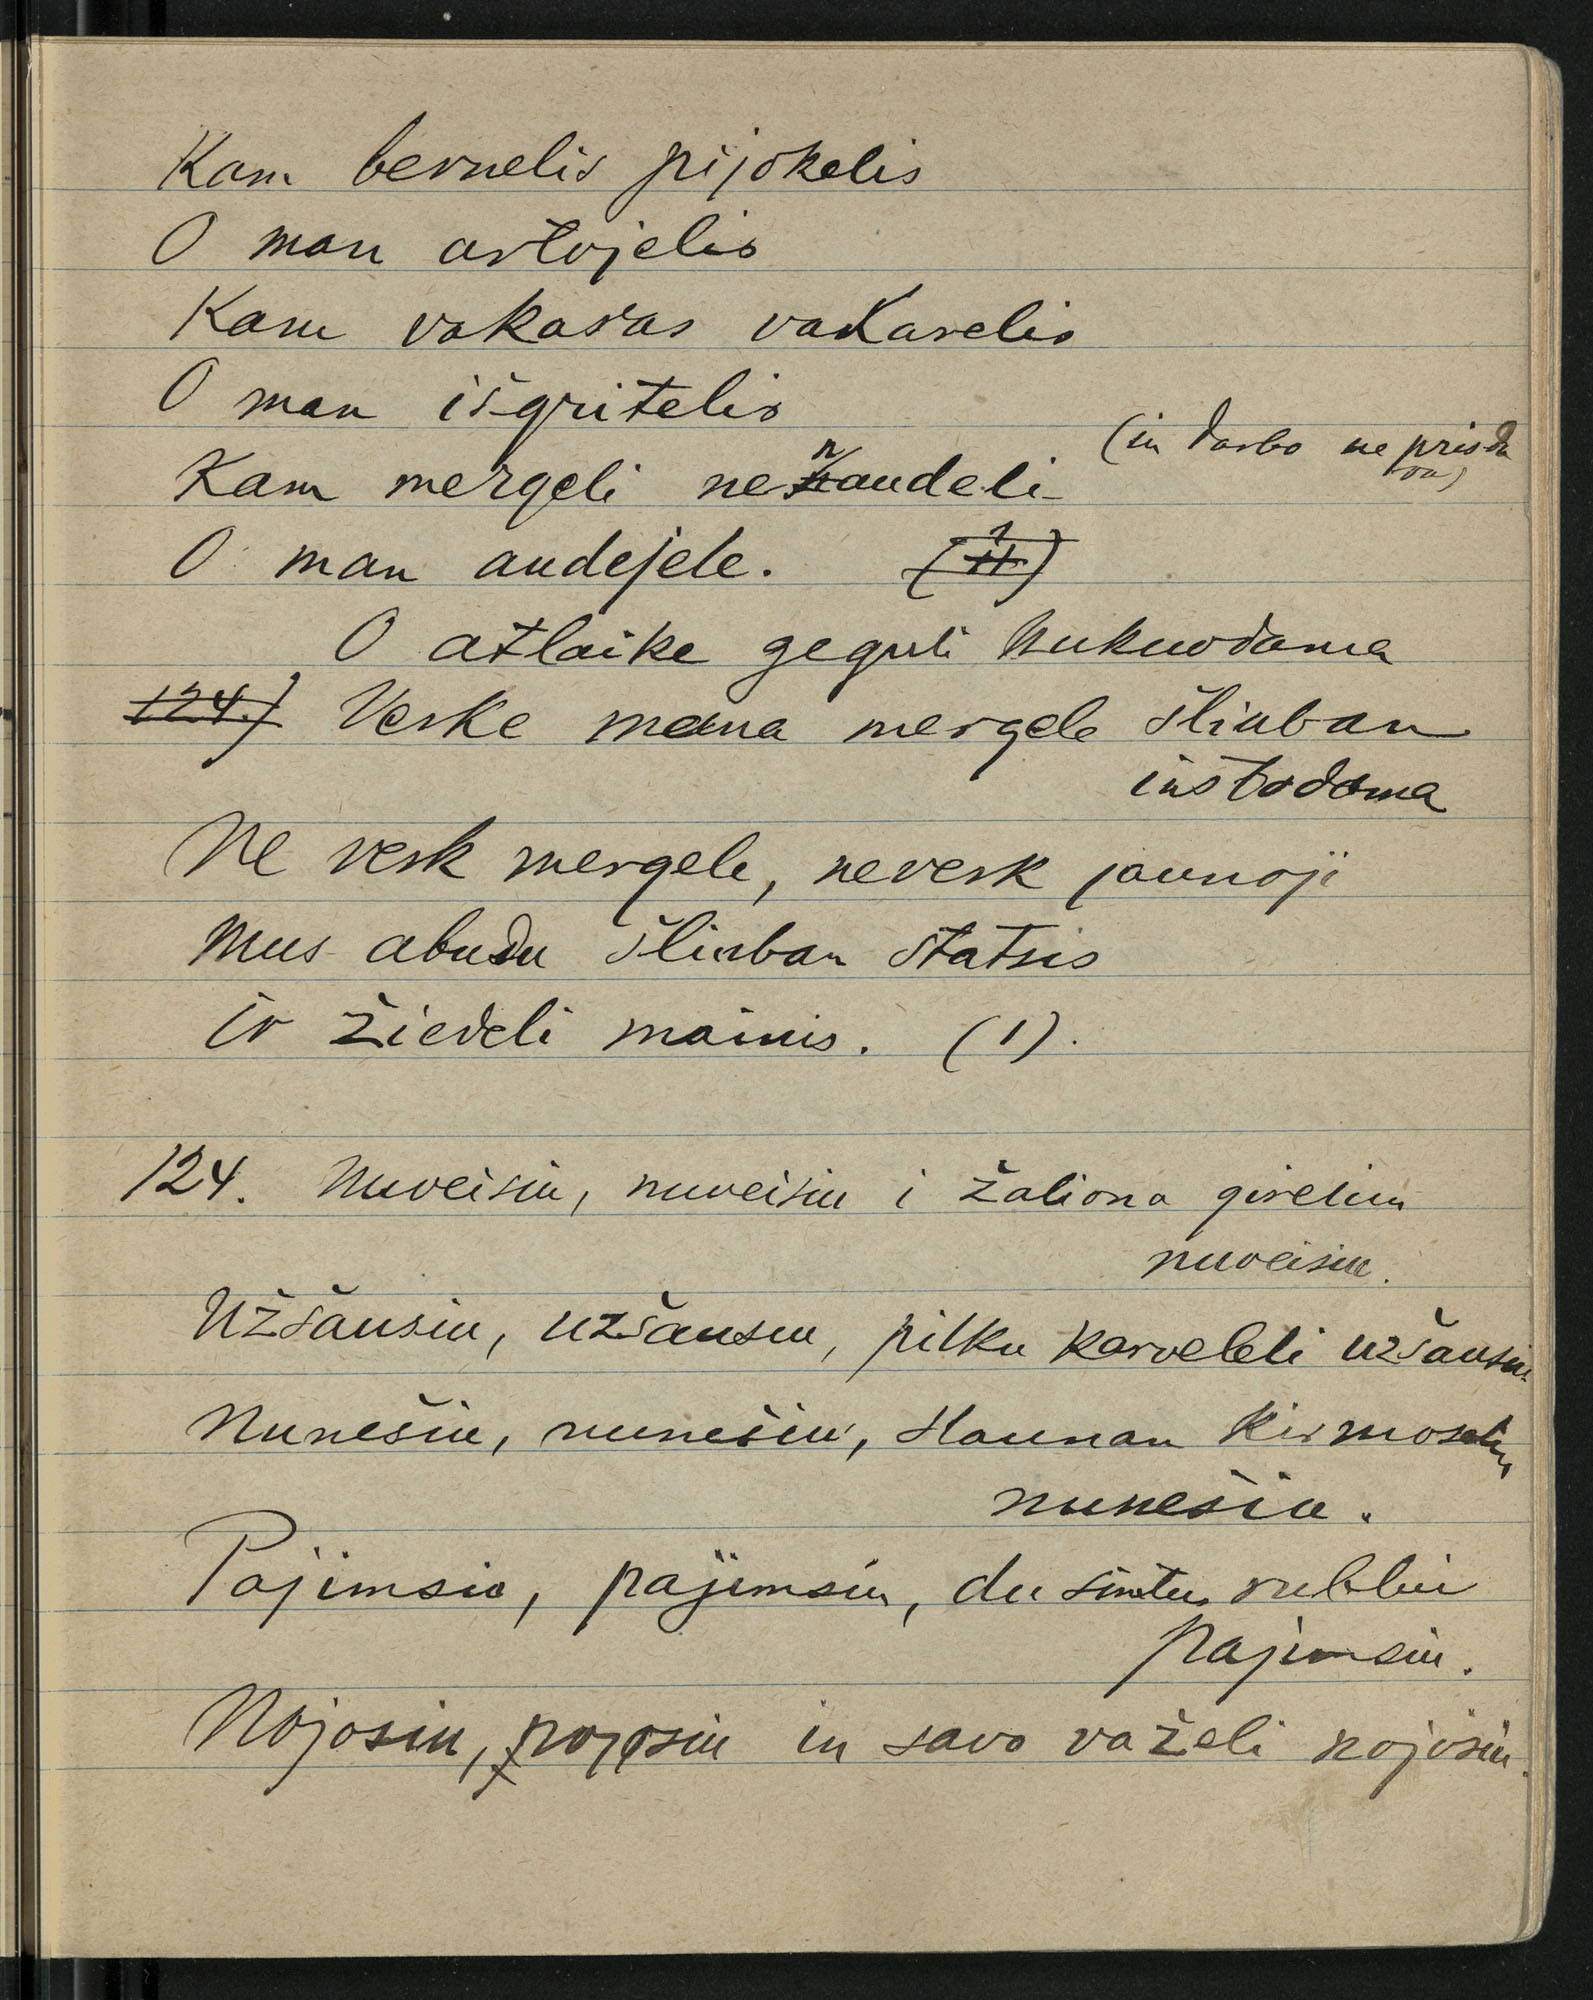 Kam bernelis pijokelis
O man artojelis
Kam vakaras vakarelis
O man išgritelis
Kam mergeli nenaudeli (in darbo ne prisda
O man audejele.
O atlaike geguti kukuodama
124.) Verke mana mergele šliuban
instodama
Ne verk mergele, neverk jaunoji
Mus abudu šliuban statsis
ir žiedeli mainis. (1).
124. Nuveisiu, nuveisiu i žaliona girelun
nuveisiu.
Užšausiu, uzšausiu, pilku karveleli uzšausiu
Nunešiu, nunešiu, Kaunan Kirmoseliu
nunešiu.
Pajimsiu, pajimsiu, du simtu rubliu
pajimsiu.
Nojosiu, nojosiu in savo važeli nojosiu.